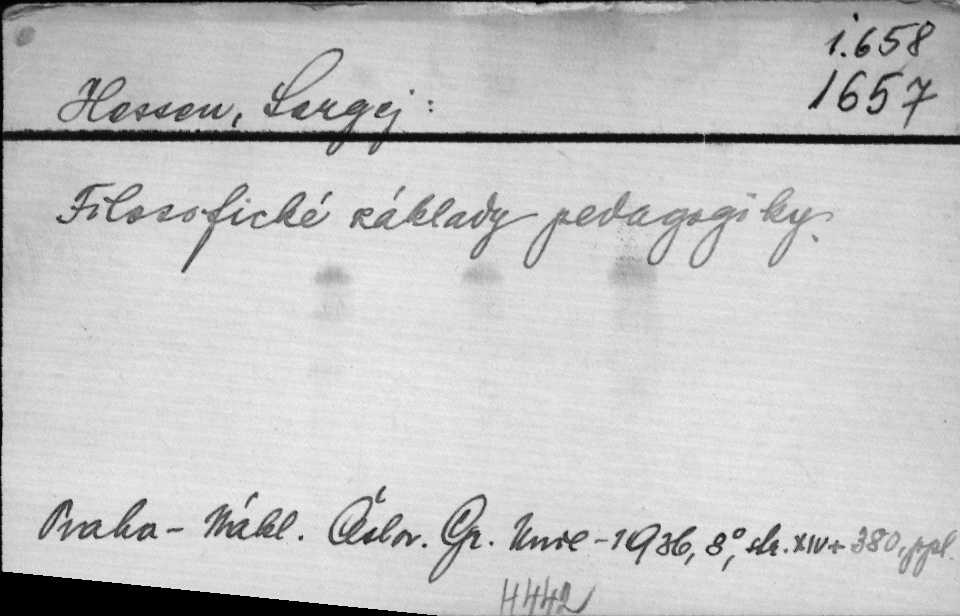 1.658
1657
Hessen, Sergej:
Filosofické základy pedagogiky.
Praha - Nákl. Českosl. Gr. Unie - 1936, 8°, str. XIV + 380, ppl.
H442